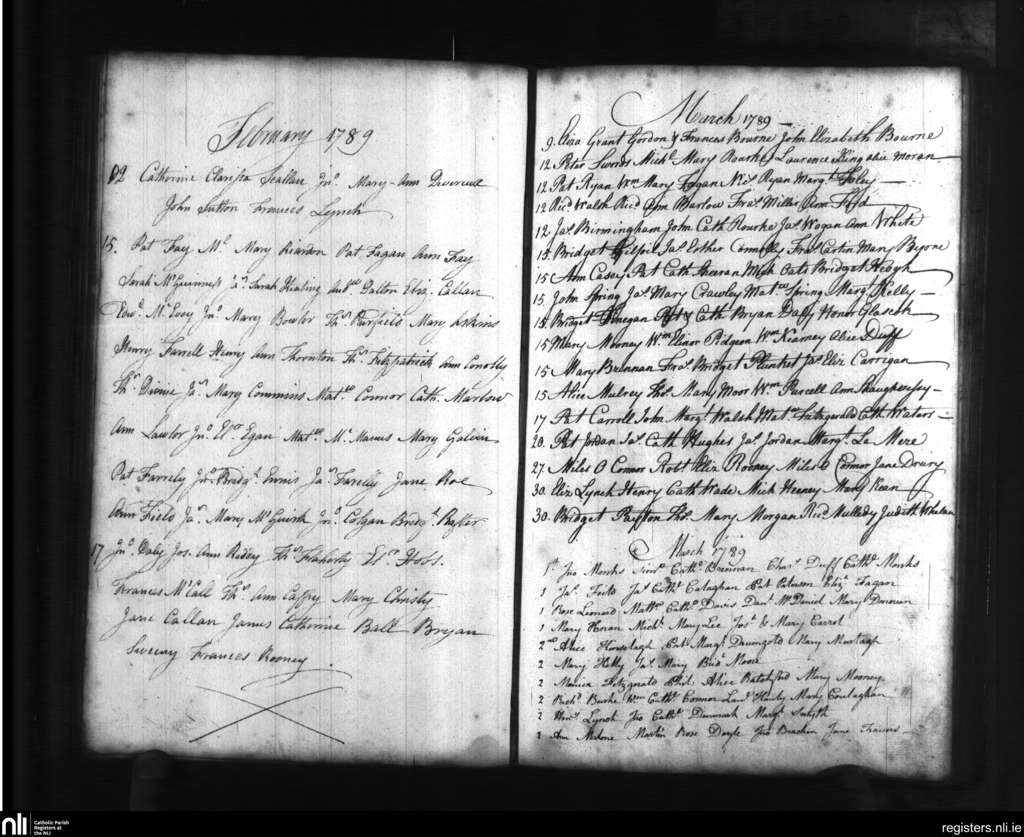 February 1789
12 Catherine Clarissa Scallan Jno. Mary-Ann Devereux
John Sutton Frances Lynch
15. Pat Fay Ml. Mary Reardon Pat Fagan Ann Fay
Sarah McGuinness Sarah Keating Dalton Esq. Callan
Edwd. McEvoy Jno. Marcy Bowlor Ths. Fairfield Mary Askins
Henry Farrell Henry Ann Thornton Ths. Fitzpatrick Ann Connolly
Ths. Ja. Mary Commins Mattw. Connor Cath. Marlow
Ann Lawlor Jno. Elr. Egan Mattw. Mc. Manus Mary Galvin
Pat Farrely Bridgt. Ennis Jas. Farelly Jane Roe
Ann Field Jas. Mary McGuirk Jno. Colgan Bridgt. Rafter
17 Jno. Daly Jos. Ann Ths. Flaherty
Frances McCall Ths. Ann Caffry Mary Christy
Jane Callan James Catherine Ball Bryan
Sweeny Frances Rooney
March 1789
9. Eliza Grant Gordon & Frances Bourne John Elizabeth Bourne
12 Peter Michl. Mary Rourke Laurence King alia Moran
12 Pat Ryan Wm. Mary Fagan Ryan Margt. Foley
12 Ricd. Walsh Ricd. Ann Barlow Fras. Miller Ann
12 Jas. Birmingham John Cath Rourke Jas. Wogan Ann White
15. Bridget Jas. Esther Connolly Fras. Cartin Mary Byrne
15 Ann Casey Pat Cath Sheeran Mich Cate Bridget Keogh
15 John Spring Jas. Mary Crawley Matw. Spring Margt. Kelly
15. Bridget Finegan Pat & Cath Bryan Daffy Honor Glascoth
15 Mary Mooney Wm. Elinor Pidgeon Wm. Kearney Alice Duff
15 Mary Brennan Fras. Bridget Plunket Jas. Eliz Carrigan
15 Alice Mulrey Ths. Mary Moor Wm. Purcell Ann Shaughnessy
17 Pat Carroll John Margt. Walsh Matw. Fitzgerald Cath Waters
20. Pat Jordan Jas. Cath Hughes Jas. Jordan Margt. La Mere
27. Miles O Connor Robt Eliz Rooney Miles O Connor Jane Drury
30. Eliz Lynch Henry Cath Wade Mich Heeney Mary Kean
30. Bridget Payton Ths. Mary Morgan Ricd Mulledy Judith Whelan
March 1789
1st Jno Monks Simn. Cathe. Brennan Chars. Duff Cathe. Monks
1 Jas. Foote Js. Cathe. Calaghan Pat Paterson Elizh. Fagan
1 Rose Leonard Mattw. Cathe. Davis Danl. McDaniel Mary Donovan
1 Mary Horan Michl. Mary Lee Josh. & Mary Carrol
2nd Alice Patk. Margt. Mary Murtagh
2 Mary Kelly Jas. Mary Bridt. Moore
2 Monica Fitzgerald Phil. Alice Ratchford Mary Mooney
2 Richd. Burke Wm. Cathe. Connor Mary Coulaghan
2 Lynch Jno Cathe. Margt. Smyth
2 Ann Malone Martin Rose Doyle Jno Bracken Jane Travers
nli
Catholic Parish
Registers at
the NLI
registers.nli.ie